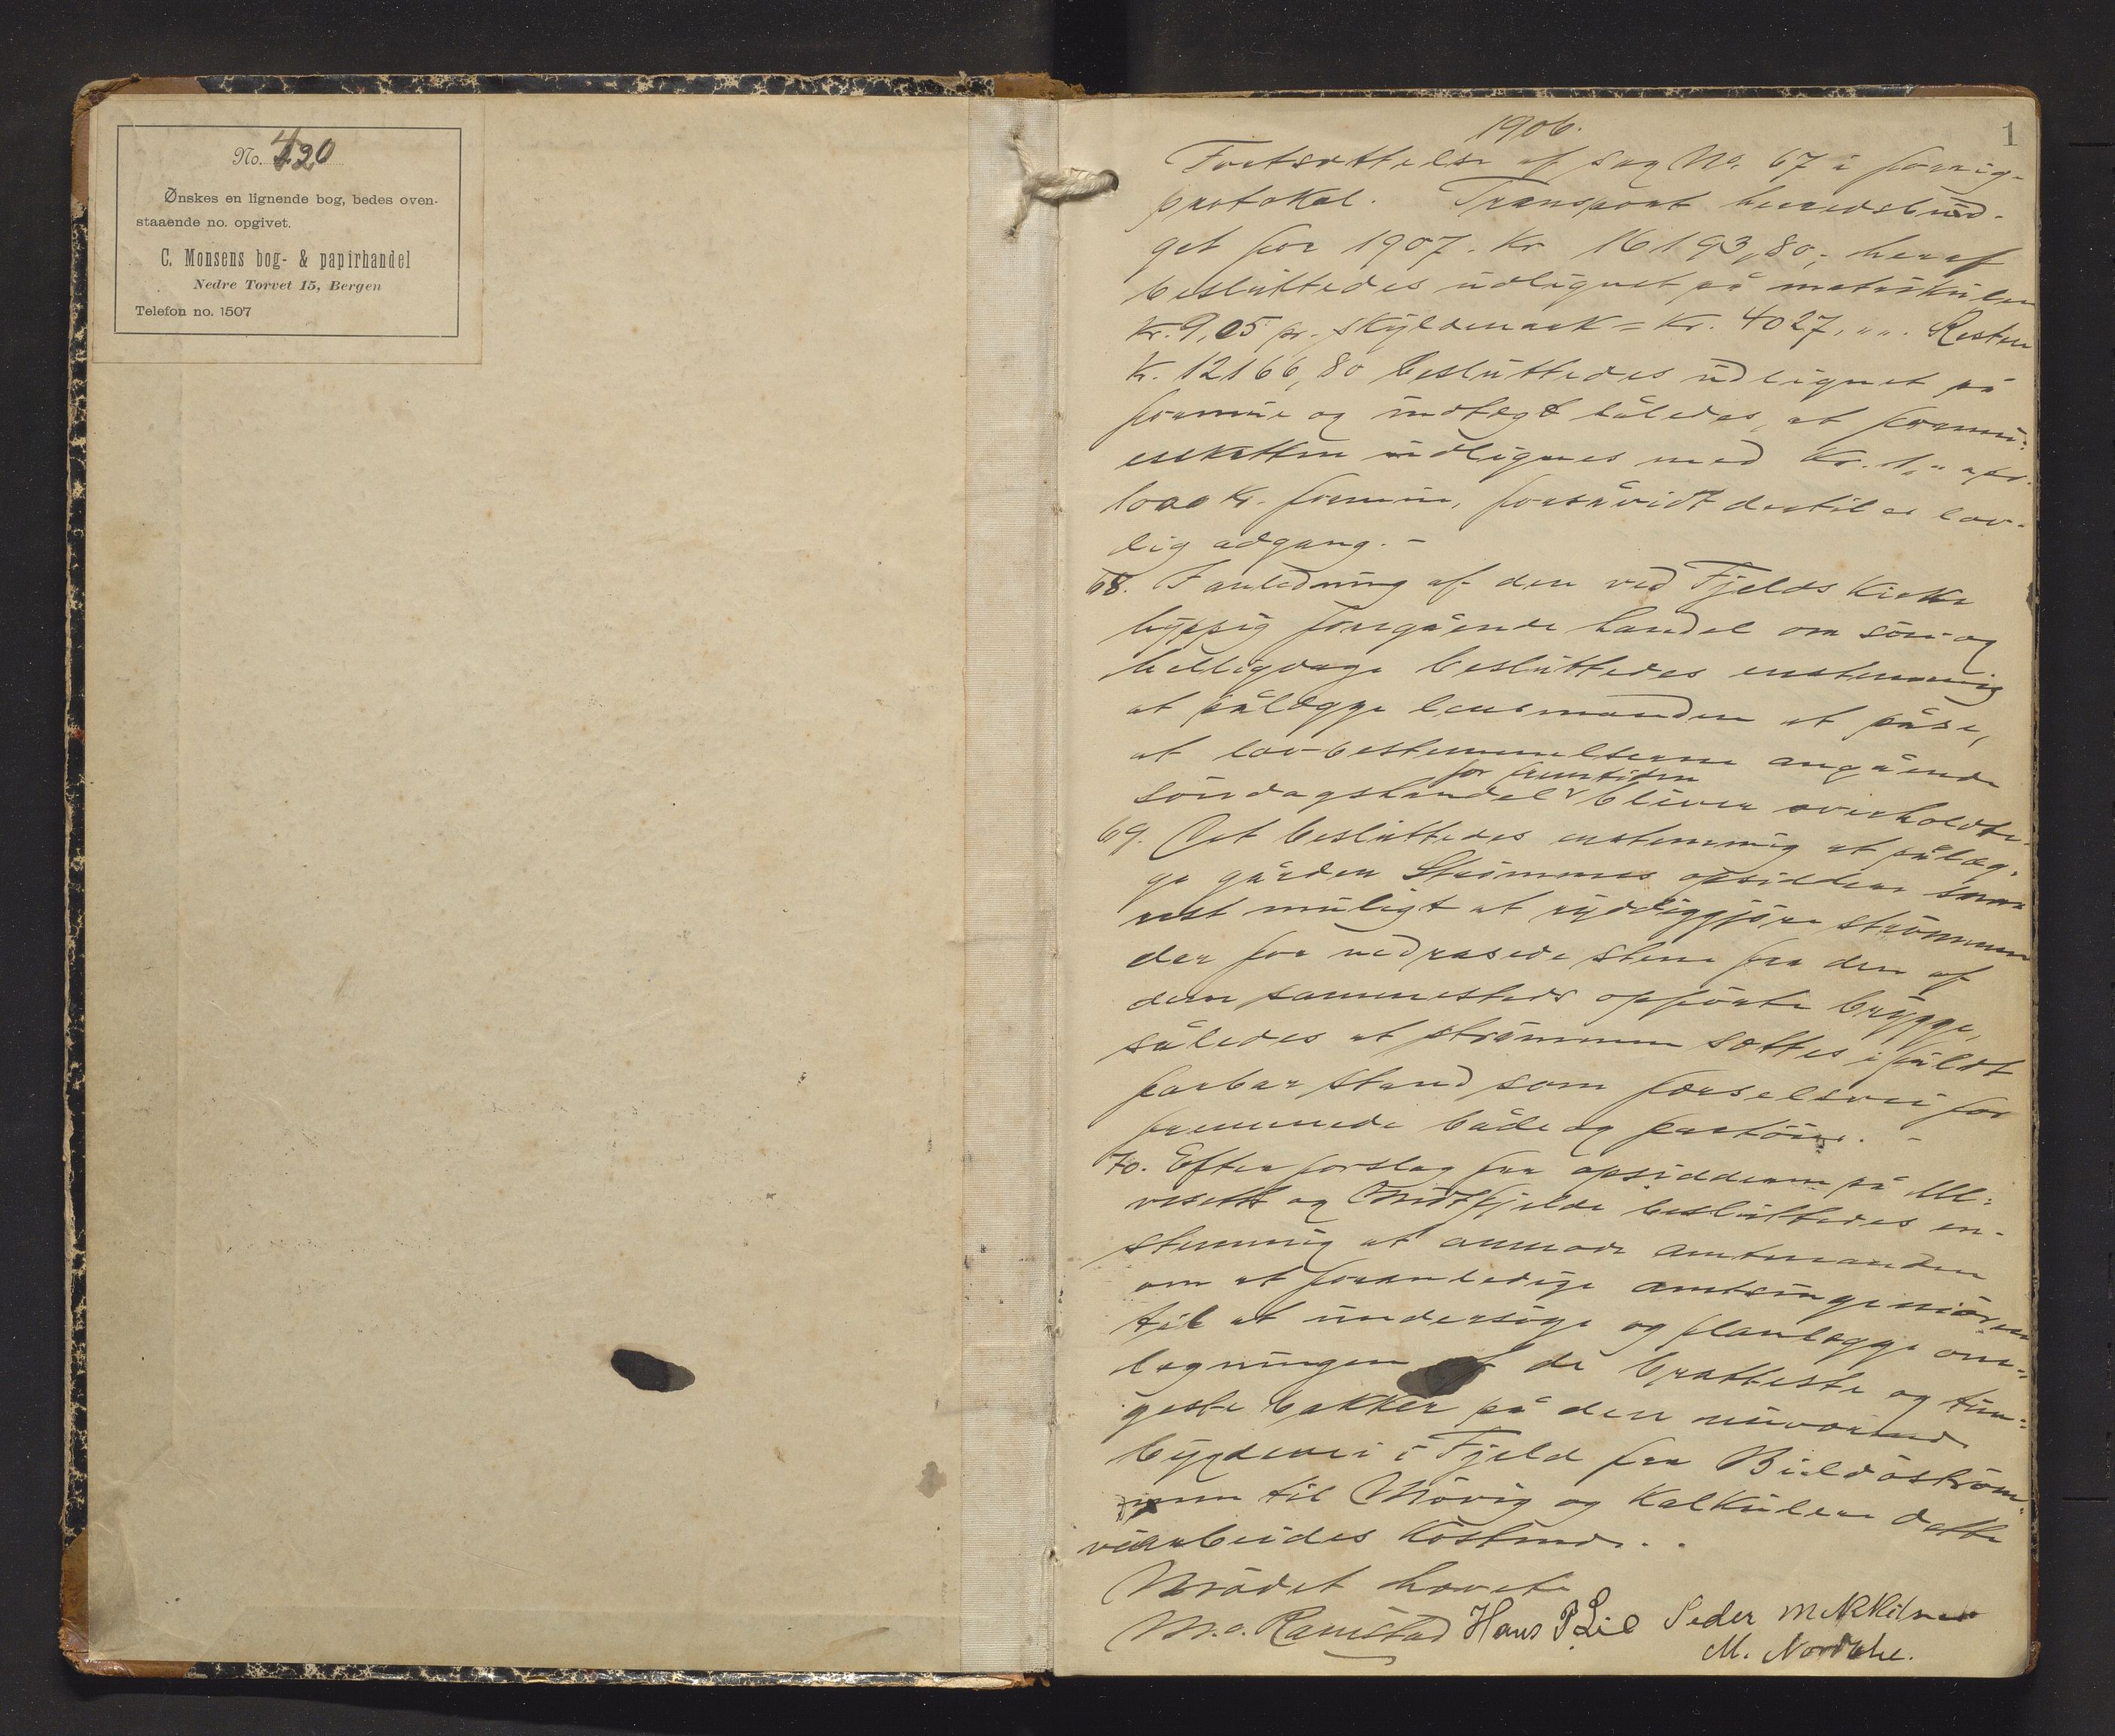 No. 420
Ønskes en lignende bog, bedes oven-
staaende no. opgivet.
C. Monsens bog- & papirhandel
Nedre Torvet 15, Bergen
Telefon no. 1507
1
1906.
Fortsættelse af sag No. 67 i forrige
protokol. Transport herredsbud-
get for 1907. Kr 16193,80,- heraf
besluttedes udlignet på matrikulen
Kr. 9,05 pr. skyldmark = Kr. 4027, „ „. Resten
Kr. 12166,80 besluttedes udlignet på
formue og indtægt således, at formu-
esskatten udlignes med Kr. 1,„ af
1000 Kr. formue, forsåvidt dertil er lov-
lig adgang. -
68. I anledning af den ved Fjelds Kirke
hyppig foregående handel om søn- og
helligdage besluttedes enstemmig
at pålægge lensmanden at påse,
at lovbestemmelserne angående
for fremtiden
søndagshandel bliver overholdte.
69. Det besluttedes enstemmig at pålæg-
ge gården Strømmes opsiddere snar
rest muligt at ryddiggjøre strømmen
der for nedrasede stene fra den af
dem sammesteds opførte brygge,
således at strømmen sættes i fuldt
farbar stand som færselsvei for
fremmede både og fartøier. -
70. Efter forslag fra opsidderne på Ul-
vesett og Midtfjelde besluttedes en-
stemmig at anmode amtmanden
om at foranledige amtsingeniøren
til at undersøge og planlægge om-
lægningen af de bratteste og tun-
geste bakker på den nuværende
bygdevei i Fjeld fra Bildøstrøm-
men til Møvig og kalkulere dette
veiarbeides kostende. .
Mødet hævet
M. A. Ramstad Hans P Lie Peder M
M. Nordvhe.